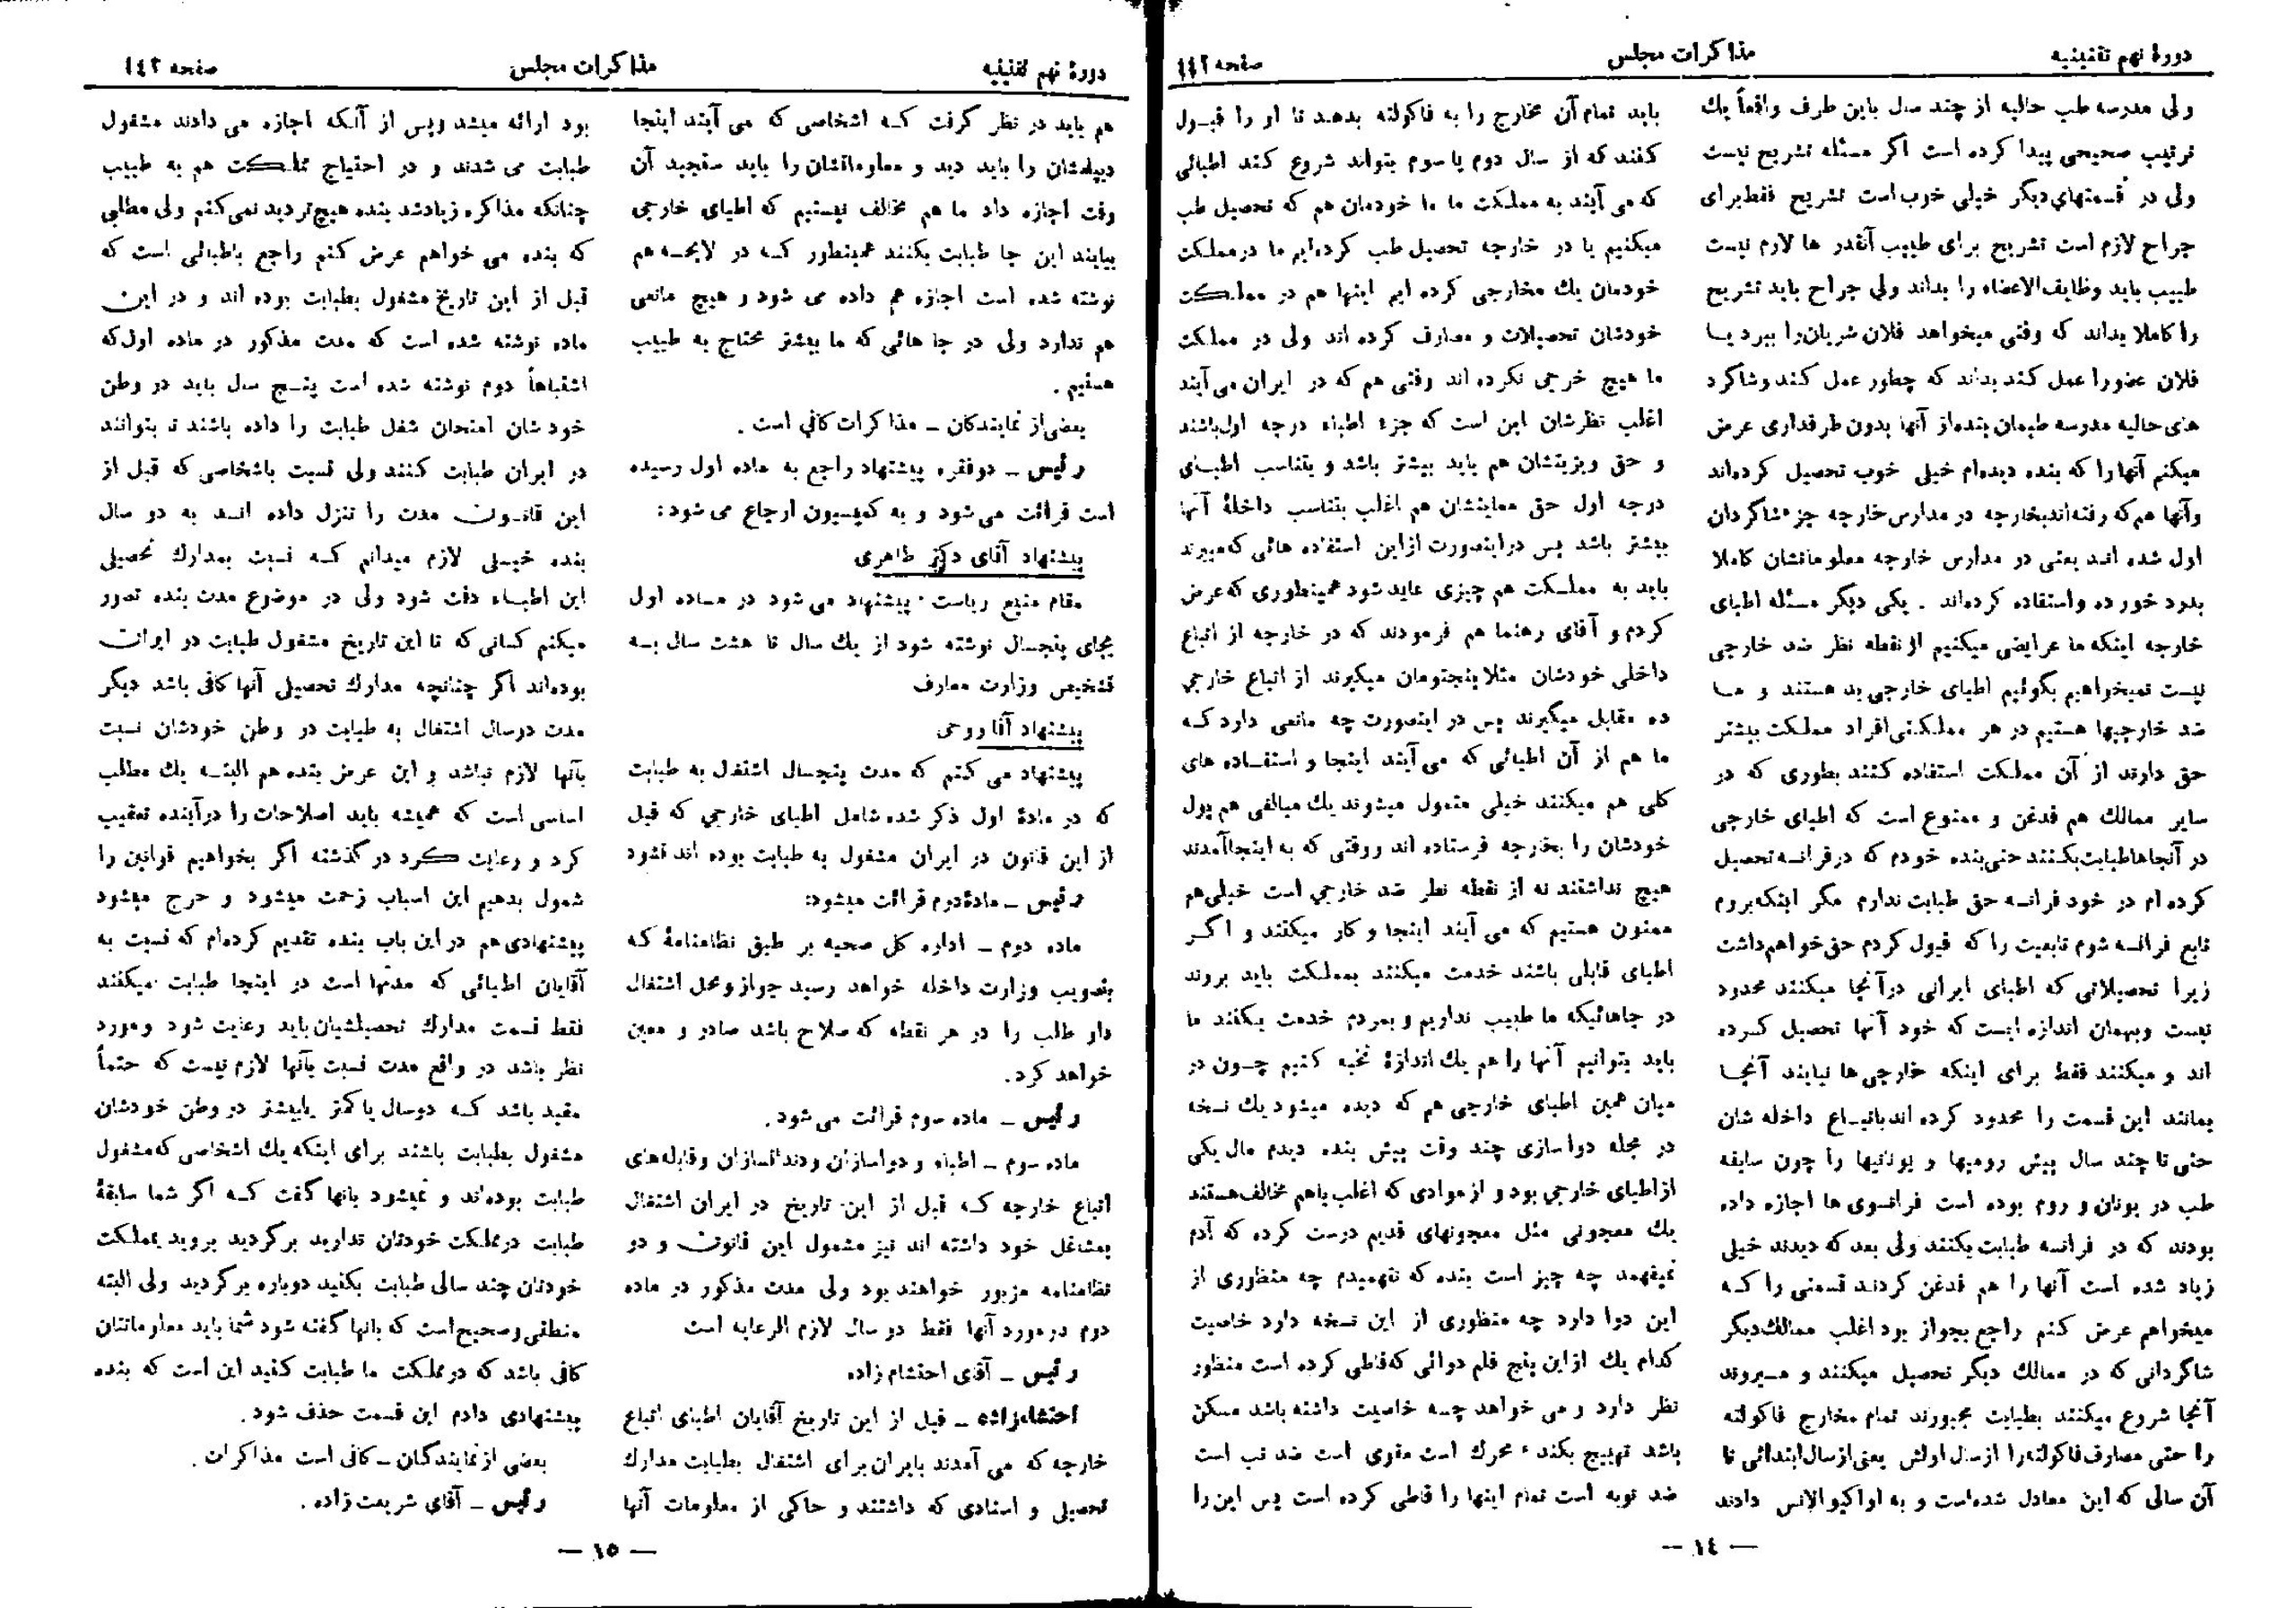 دورهٔ نهم تقنینیه
مذاکرات مجلس
صفحه ۱٤۲
ولی مدرسه طب حالیه از چند سال باین طرف واقعاً یك
ترتیب صحیحی پیدا کرده است اگر مسئله تشریح نیست
ولی در قسمتهای دیگر خیلی خوب است تشریح فقط برای
جراح لازم است تشریح برای طبیب آنقدر ها لازم نیست
طبیب باید وظایف‌الاعضاء را بداند ولی جراح باید تشریح
را کاملا بداند که وقتی میخواهد فلان شریان را ببرد یـا
فلان عضو را عمل کند بداند که چطور عمل کند و شاگرد
های حالیه مدرسه طبمان بنده از آنها بدون طرفداری عرض
میکنم آنها را که بنده دیده‌ام خیلی خوب تحصیل کرده‌اند
و آنها هم که رفته‌اند بخارجه در مدارس خارجه جزء شاگردان
اول شده انـد یعنی در مدارس خارجه معلوماتشان کاملا
بدرد خورده و استفاده کرده‌اند . یکی دیگر مسئله اطبای
خارجه اینکه ما عرایضی میکنیم از نقطه نظر ضد خارجی
نیست نمیخواهیم بگوئیم اطبای خارجی بد هستند و مـا
ضد خارجیها هستیم در هر مملکتی افراد مملکت بیشتر
حق دارند از آن مملکت استفاده کنند بطوری که در
سایر ممالك هم قدغن و ممنوع است که اطبای خارجی
در آنجاها طبابت بکنند حتی بنده خودم که در فرانسه تحصیل
کرده ام در خود فرانسه حق طبابت ندارم مگر اینکه بروم
تابع فرانسه شوم تابعیت را که قبول کردم حق خواهم داشت
زیرا تحصیلاتی که اطبای ایرانی در آنجا میکنند محدود
نیست وبهمان اندازه ایست که خود آنها تحصیل کـرده
اند و میکنند فقط برای اینکه خارجی ها نیایند آنجـا
بمانند این قسمت را محدود کرده اند باتبـاع داخله شان
حتی تا چند سال پیش رومیها و یونانیها را چون سابقه
طب در یونان و روم بوده است فرانسوی ها اجازه داده
بودند که در فرانسه طبابت بکنند ولی بعد که دیدند خیلی
زیاد شده است آنها را هم قدغن کردنـد قسمتی را کـه
میخواهم عرض کنم راجع بجواز بود اغلب ممالك دیگر
شاگردانی که در ممالك دیگر تحصیل میکنند و میروند
آنجا شروع میکنند بطبابت مجبورند تمام مخارج فاکولته
را حتی مصارف فاکولته را از سال اولش یعنی از سال ابتدائی تا
آن سالی که این معادل شده است و به او اکیوالانس دادند
باید تمام آن مخارج را به فاکولته بدهـد تا او را قبـول
کنند که از سال دوم یا سوم بتواند شروع کند اطبائی
که می آیند به مملکت ما ما خودمان هم که تحصیل طب
میکنیم یا در خارجه تحصیل طب کرده‌ایم ما در مملکت
خودمان یك مخارجی کرده ایم اینها هم در مملـکت
خودشان تحصیلات و مصارف کرده اند ولی در مملکت
ما هیچ خرجی نکرده اند وقتی هم که در ایران می‌آیند
اغلب نظرشان این است که جزء اطباء درجه اول باشند
و حق ویزیتشان هم باید بیشتر باشد و بتناسب اطبـای
درجه اول حق معاینشان هم اغلب بتناسب داخلهٔ آنها
بیشتر باشد پس در اینصورت از این استفاده هائی که میبرند
باید به مملـکت هم چیزی عاید شود همینطوری که عرض
کردم و آقای رهنما هم فرمودند که در خارجه از اتباع
داخلی خودشان مثلا پنجتومان میگیرند از اتباع خارجی
ده مقابل میگیرند پس در اینصورت چه مانعی دارد کـه
ما هم از آن اطبائی که می آیند اینجا و استفـاده های
کلی هم میکنند خیلی متمول میشوند یك مبالغی هم پول
خودشان را بخارجه فرستاده اند ووقتی که به اینجا آمدند
هیچ نداشتند نه از نقطه نظر ضد خارجی است خیلی هم
ممنون هستیم که می آیند اینجا و کار میکنند و اگـر
اطبای قابلی باشند خدمت میکنند بمملکت باید بروند
در جاهائیکه ما طبیب نداریم و بمردم خدمت بکنند ما
باید بتوانیم آنها را هم یك اندازهٔ تخبه کنیم چـون در
میان همین اطبای خارجی هم که دیده میشود یك نسخه
در مجله دوا سازی چند وقت پیش بنده دیدم مال یکی
از اطبای خارجی بود و از موادی که اغلب باهم مخالف هستند
یك معجونی مثل معجونهای قدیم درست کرده که آدم
نمیفهمد چه چیز است بنده که نفهمیدم چه منظوری از
این دوا دارد چه منظوری از این نسخه دارد خاصیت
کدام یك از این پنج قلم دوائی که قاطی کرده است منظور
نظر دارد و می خواهد چـه خاصیت داشته باشد مسکن
باشد تهییج بکند ، محرك است مقوی است ضد تب است
ضد نوبه است تمام اینها را قاطی کرده است پس این را
— ۱٤ —
دورهٔ نهم تقنینیه
مذاکرات مجلس
صفحه ۱٤۳
هم باید در نظر گرفت کـه اشخاصی که می آیند اینجا
دیپلمشان را باید دید و معلوماتشان را باید سنجید آن
وقت اجازه داد ما هم مخالف نیستیم که اطبای خارجی
بیایند این جا طبابت بکنند همینطور کـه در لایحـه هم
نوشته شده است اجازه هم داده می شود و هیچ مانعی
هم ندارد ولی در جا هائی که ما بیشتر محتاج به طبیب
هستیم .
بعضی از نمایندکان ـ مذاکرات کافی است .
رئیس ـ دوفقره پیشنهاد راجع به ماده اول رسیده
است قرائت می شود و به کمیسیون ارجاع می شود:
پیشنهاد آقای دکتر طاهری
مقام منیع ریاست . پیشنهاد می شود در مـاده اول
بجای پنجسال نوشته شود از یك سال تا هشت سال بـه
تشخیص وزارت معارف
پیشنهاد آقا روحی
پیشنهاد می کنم که مدت پنجسال اشتغال به طبابت
که در مادهٔ اول ذکر شده شامل اطبای خارجی که قبل
از این قانون در ایران مشغول به طبابت بوده اند نشود
رئیس ـ مادهٔ دوم قرائت میشود:
ماده دوم ـ اداره کل صحیه بر طبق نظامنامهٔ کـه
بتصویب وزارت داخله خواهد رسید جواز و محل اشتغال
داو طلب را در هر نقطه که صلاح باشد صادر و معین
خواهد کرد.
رئیس ـ ماده سوم قرائت می شود .
ماده سوم ـ اطباء و دواسازان و دندانسازان وقابله‌های
اتباع خارجه کـه قبل از این تاریخ در ایران اشتغال
بمشاغل خود داشته اند نیز مشمول این قانون و در
نظامنامه مزبور خواهند بود ولی مدت مذکور در ماده
دوم در مورد آنها فقط دو سال لازم الرعایه است
رئیس ـ آقای احتشام زاده
احتشام‌زاده ـ قبل از این تاریخ آقایان اطبای اتباع
خارجه که می آمدند بایران برای اشتغال بطبابت مدارك
تحصیلی و اسنادی که داشتند و حاکی از معلومات آنها
بود ارائه میشد وپس از آنکه اجازه می دادند مشغول
طبابت می شدند و در احتیاج مملـکت هم به طبیب
چنانکه مذاکره زیاد شد بنده هیچ تردید نمی کنم ولی مطلبی
که بنده می خواهم عرض کنم راجع باطبائی است که
قبل از این تاریخ مشغول بطبابت بوده اند و در این
ماده نوشته شده است که مدت مذکور در ماده اول که
اشتباهاً دوم نوشته شده است پنـج سال باید در وطن
خود شان امتحان شغل طبابت را داده باشند تا بتوانند
در ایران طبابت کنند ولی نسبت باشخاصی که قبل از
این قانون مدت را تنزل داده انـد به دو سال
بنده خیـلی لازم میدانم کـه نسبت بمدارك تحصیلی
این اطبـاء دقت شود ولی در موضوع مدت بنده تصور
میکنم کسانی که تا این تاریخ مشغول طبابت در ایران
بوده‌اند اگر چنانچه مدارك تحصیلی آنها کافی باشد دیگر
مدت دوسال اشتغال به طبابت در وطن خودشان نسبت
بآنها لازم نباشد و این عرض بنده هم البتـه یك مطلب
اساسی است که همیشه باید اصلاحات را درآینده تعقیب
کرد و رعایت کرد در گذشته اگر بخواهیم قوانین را
شمول بدهیم این اسباب زحمت میشود و حرج میشود
پیشنهادی هم در این باب بنده تقدیم کرده‌ام که نسبت به
آقایان اطبائی که مدتها است در اینجا طبابت میکنند
فقط قسمت مدارك تحصیلشیان باید رعایت شود ومورد
نظر باشد در واقع مدت نسبت بآنها لازم نیست که حتماً
مقید باشد کـه دوسال یا کمتر یابیشتر در وطن خودشان
مشغول بطبابت باشند برای اینکه یك اشخاصی که مشغول
طبابت بوده‌اند و نمیشود بانها گفت کـه اگر شما سابقهٔ
طبابت در مملکت خودتان ندارید برگردید بروید بمملکت
خودتان چند سالی طبابت بکنید دوباره برگردید ولی البته
منطقی وصحیح است که بانها گفته شود شما باید معلوماتتان
کافی باشد که در مملکت ما طبابت کنید این است که بنده
پیشنهادی دادم این قسمت حذف شود .
بعضی از نمایندگان ـ کافی است مذاکرات .
رئیس ـ آقای شریعت زاده .
— ۱۵ —